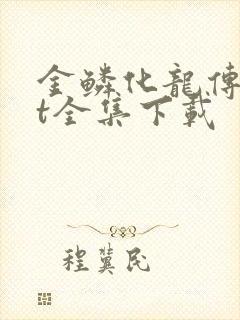 金鳞化龍傳
t全集下載
程冀民